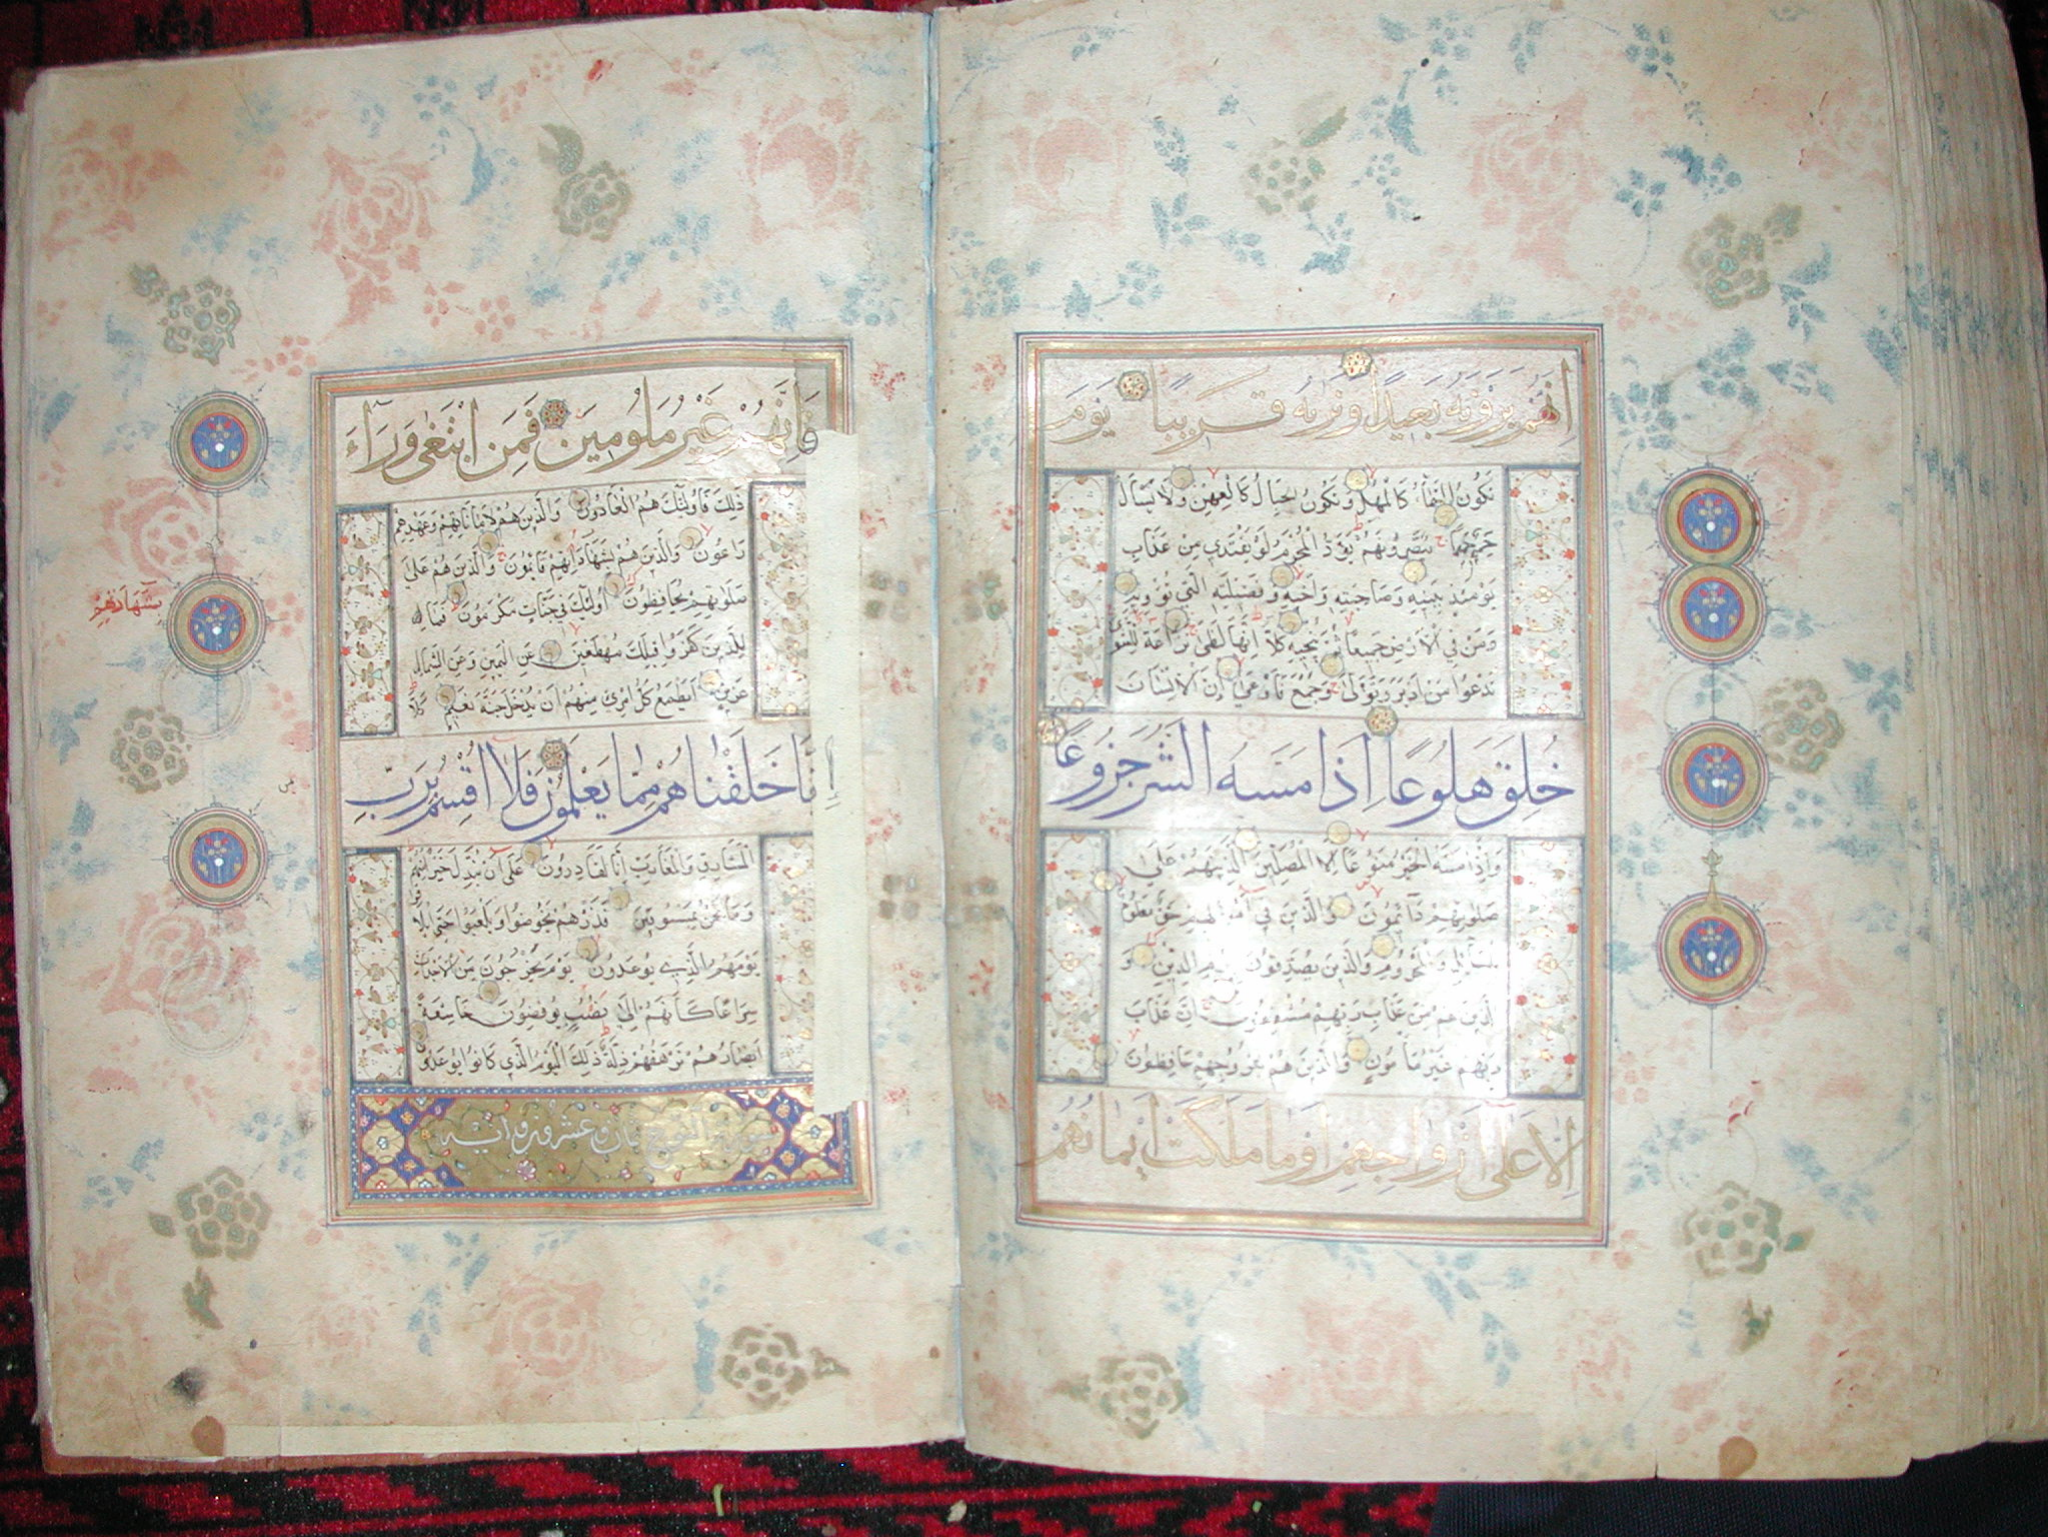 إنهم يرونه بعيدا ونريه قريبا يوم
تكون السماء كالمهل وتكون الجبال كالعهن ولا يسأل
حميم حميما يبصرونهم يود المجرم لو يفتدي من عذاب
يومئذ ببنيه وصاحبته وأخيه وفصيلته التي تؤويه
ومن في الأرض جميعا ثم ينجيه كلا إنها لظى نزاعة للشوى
تدعوا من أدبر وتولى وجمع فأوعى إن الإنسان
خُلِقَ هَلُوعًا إِذَا مَسَّهُ الشَّرُّ جَزُوعًا
وإذا مسه الخير منوعا إلا المصلين الذين هم على
صلوتهم دآئمون والذين في أموالهم حق معلوم
للسآئل والمحروم والذين يصدقون بيوم الدين و
الذين هم من عذاب ربهم مشفقون إن عذاب
ربهم غير مأمون والذين هم لفروجهم حافظون
إلا على أزواجهم أو ما ملكت أيمانهم
فَإِنَّهُمْ غَيْرُ مَلُومِينَ فَمَنِ ابْتَغَى وَرَآءَ
ذلك فأولئك هم العادون والذين هم لأماناتهم وعهدهم
راعون والذين هم بشهاداتهم قائمون والذين هم على
صلوتهم يحافظون أولئك في جنات مكرمون فمال
للذين كفروا قبلك مهطعين عن اليمين وعن الشمال
عزين أيطمع كل امرئ منهم أن يدخل جنة نعيم كلا
إِنَّا خَلَقْنَاهُمْ مِمَّا يَعْلَمُونَ فَلَا أُقْسِمُ بِرَبِّ
المشارق والمغارب إنا لقادرون على أن نبدل خيرا منهم
وما نحن بمسبوقين فذرهم يخوضوا ويلعبوا حتى يلاقوا
يومهم الذي يوعدون يوم يخرجون من الأجداث
سراعا كأنهم إلى نصب يوفضون خاشعة
أبصارهم ترهقهم ذلة ذلك اليوم الذي كانوا يوعدون
سورة نوح ثمان وعشرون آية
بشهادتهم